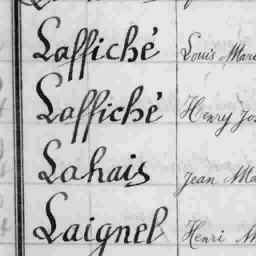 Laffiché Louis Mari
Laffiché Henry Jos
Lahais Jean Ma
Laignel Henri M